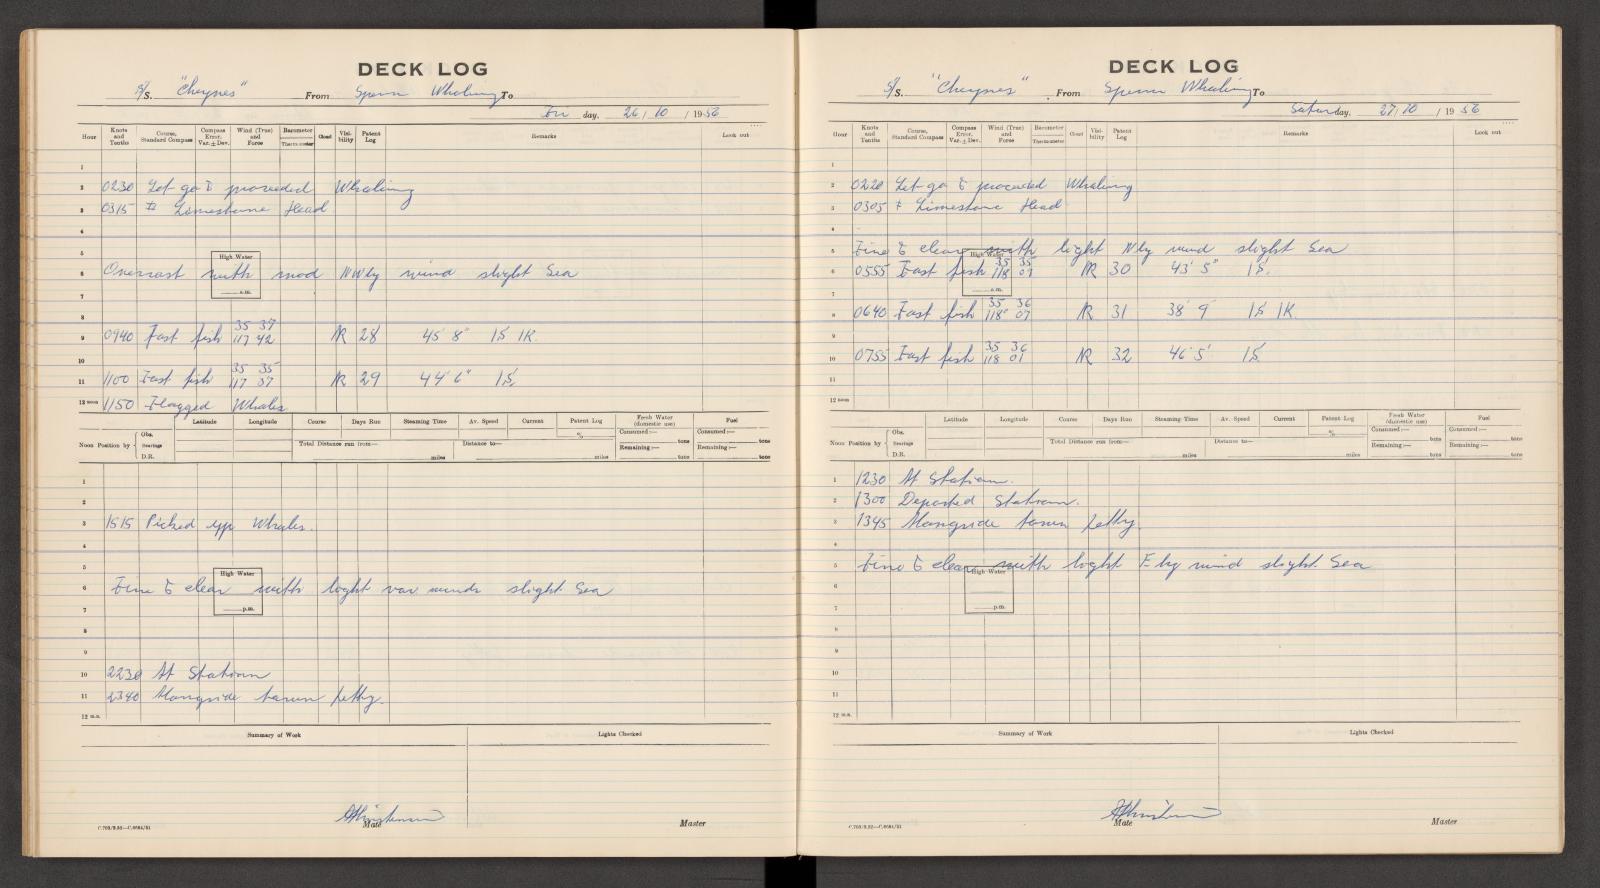 DECK LOG
S/S. "Cheynes" From Sperm Whaling To
Fri day, 26 / 10 / 1956
Hour Knots and Tenths Course, Standard Compass Compass Error. Var. ± Dev. Wind (True) and Force Barometer Thermometer Cloud Visibility Patent Log Remarks Look out
1
2 0230 Let go & proceeded Whaling
3 0315 Limestone Head
4
5
High Water
6 Overcast with mod NWly wind slight Sea
a.m.
7
8
35 37
9 0940 Fast fish 117 42 N 28 45' 8" 1S 1K.
10
35 35
11 1100 Fast fish 117 57 N 29 44' 6" 1S,
12 noon 1150 Flagged Whales
Latitude Longitude Course Days Run Steaming Time Av. Speed Current Patent Log % Fresh Water (domestic use) Fuel
Noon Position by Obs. Bearings D.R. Total Distance run from— miles Distance to— miles Consumed:— tons Remaining:— tons Consumed:— Remaining:— tons
1
2
3 1515 Picked up Whales.
4
5
High Water
6 Fine & clear with light var winds slight Sea
7 p.m.
8
9
10 2230 At Station
11 2340 Alongside town jetty.
12 m.n.
Summary of Work Lights Checked
Mate Master
C.703/9.52—C.6684/51
DECK LOG
S/S. "Cheynes" From Sperm Whaling To
Saturday, 27/10 / 1956
Hour Knots and Tenths Course, Standard Compass Compass Error. Var. ± Dev. Wind (True) and Force Barometer Thermometer Cloud Visibility Patent Log Remarks Look out
1
2 0220 Let go & proceeded Whaling
3 0305 Limestone Head
4
5 Fine & clear with light Nly wind slight Sea
High Water
35 35
6 0555 Fast fish 118 07 N 30 43' 5" 1S.
a.m.
7
35 36
8 0640 Fast fish 118° 07 N 31 38' 9' 1S 1K.
9
35 36
10 0755 Fast fish 118 01 N 32 46' 5' 1S
11
12 noon
Latitude Longitude Course Days Run Steaming Time Av. Speed Current Patent Log % Fresh Water (domestic use) Fuel
Noon Position by Obs. Bearings D.R. Total Distance run from— miles Distance to— miles Consumed:— tons Remaining:— tons Consumed:— Remaining:— tons
1 1230 At Station.
2 1300 Departed Station.
3 1345 Alongside town jetty.
4
5 Fine & clear with light E'ly wind slight Sea
High Water
6
7 p.m.
8
9
10
11
12 m.n.
Summary of Work Lights Checked
Mate Master
C.703/9.52—C.6684/51